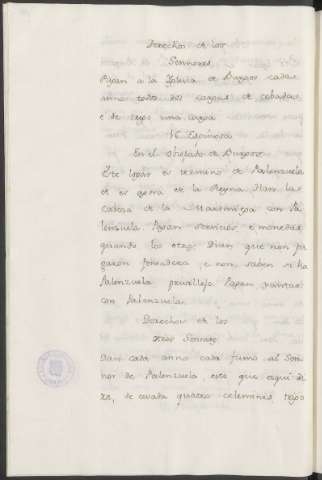 Derechos de los
Sennores.
Pagan a la Yglesia de Burgos cada
anno todo dos cargas de cebadas,
e de trigo una carga
VI Espinosa
En el Obispado de Burgos
Este logar es termino de Palenzuela
et es yerma et de la Reyna. Han la
cabeza de la Martiniega con Pa
lenzuela. Pagan servicios e monedas
quando los otros. Dicen que non pa
garon fonsadera, e non saben si ha
Palenzuela previllejo. Pagan yantar
con Palenzuela.
Derechos de los
Sennores
Dan cada anno cada fumo al Sen
nor de Palenzuela, este que aqui di
rá, de cevada quatro celemines, trigo